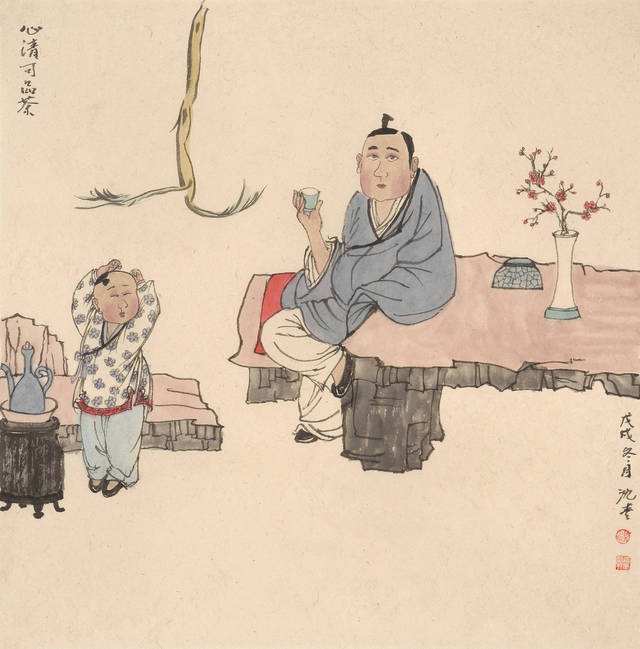 心清可品茶
戊戌冬月